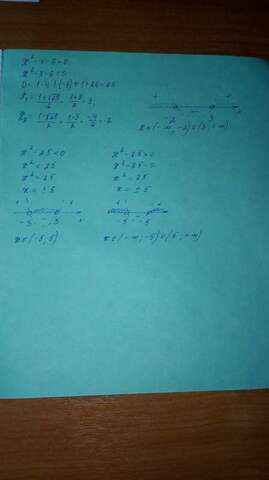 x² - x - 6 > 0
x² - x - 6 = 0
D = 1 - 4·1·(-6) = 1 + 24 = 25
x₁ = (1+√25)/2 = (1+5)/2 = 3
x₂ = (1-√25)/2 = (1-5)/2 = -4/2 = -2
+ - +
-2 3
x ∈ (-∞, -2) ∪ (3, +∞)
x² - 25 < 0
x² < 25
x² = 25
x = ± 5
-5 5
x ∈ (-5, 5)
x² - 25 > 0
x² - 25 = 0
x² = 25
x = ± 5
-5 5
x ∈ (-∞, -5) ∪ (5, +∞)